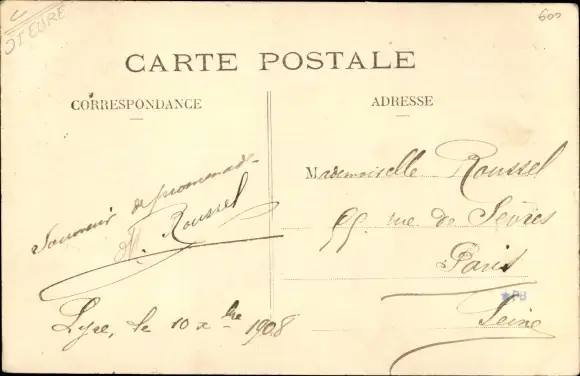 27 EURE
600
CARTE POSTALE
CORRESPONDANCE
ADRESSE
Souvenir de promenade
Roussel
Lyre, le 10 Xbre 1908
Mademoiselle Roussel
99. rue de Sèvres
Paris
★PB
Seine